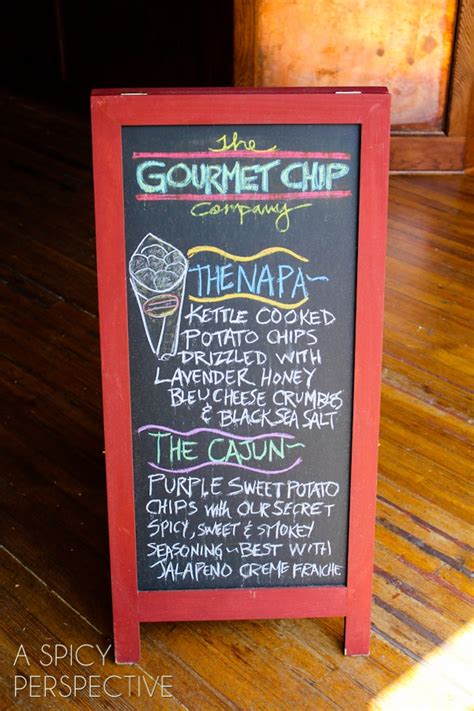 The
GOURMET CHIP
Company
THE NAPA~
KETTLE COOKED
POTATO CHIPS
DRIZZLED WITH
LAVENDER HONEY
BLEU CHEESE CRUMBLES
& BLACK SEA SALT
THE CAJUN~
PURPLE SWEET POTATO
CHIPS with OUR SECRET
SPICY, SWEET & SMOKEY
SEASONING~BEST WITH
JALAPENO CREME FRAICHE
A SPICY
PERSPECTIVE